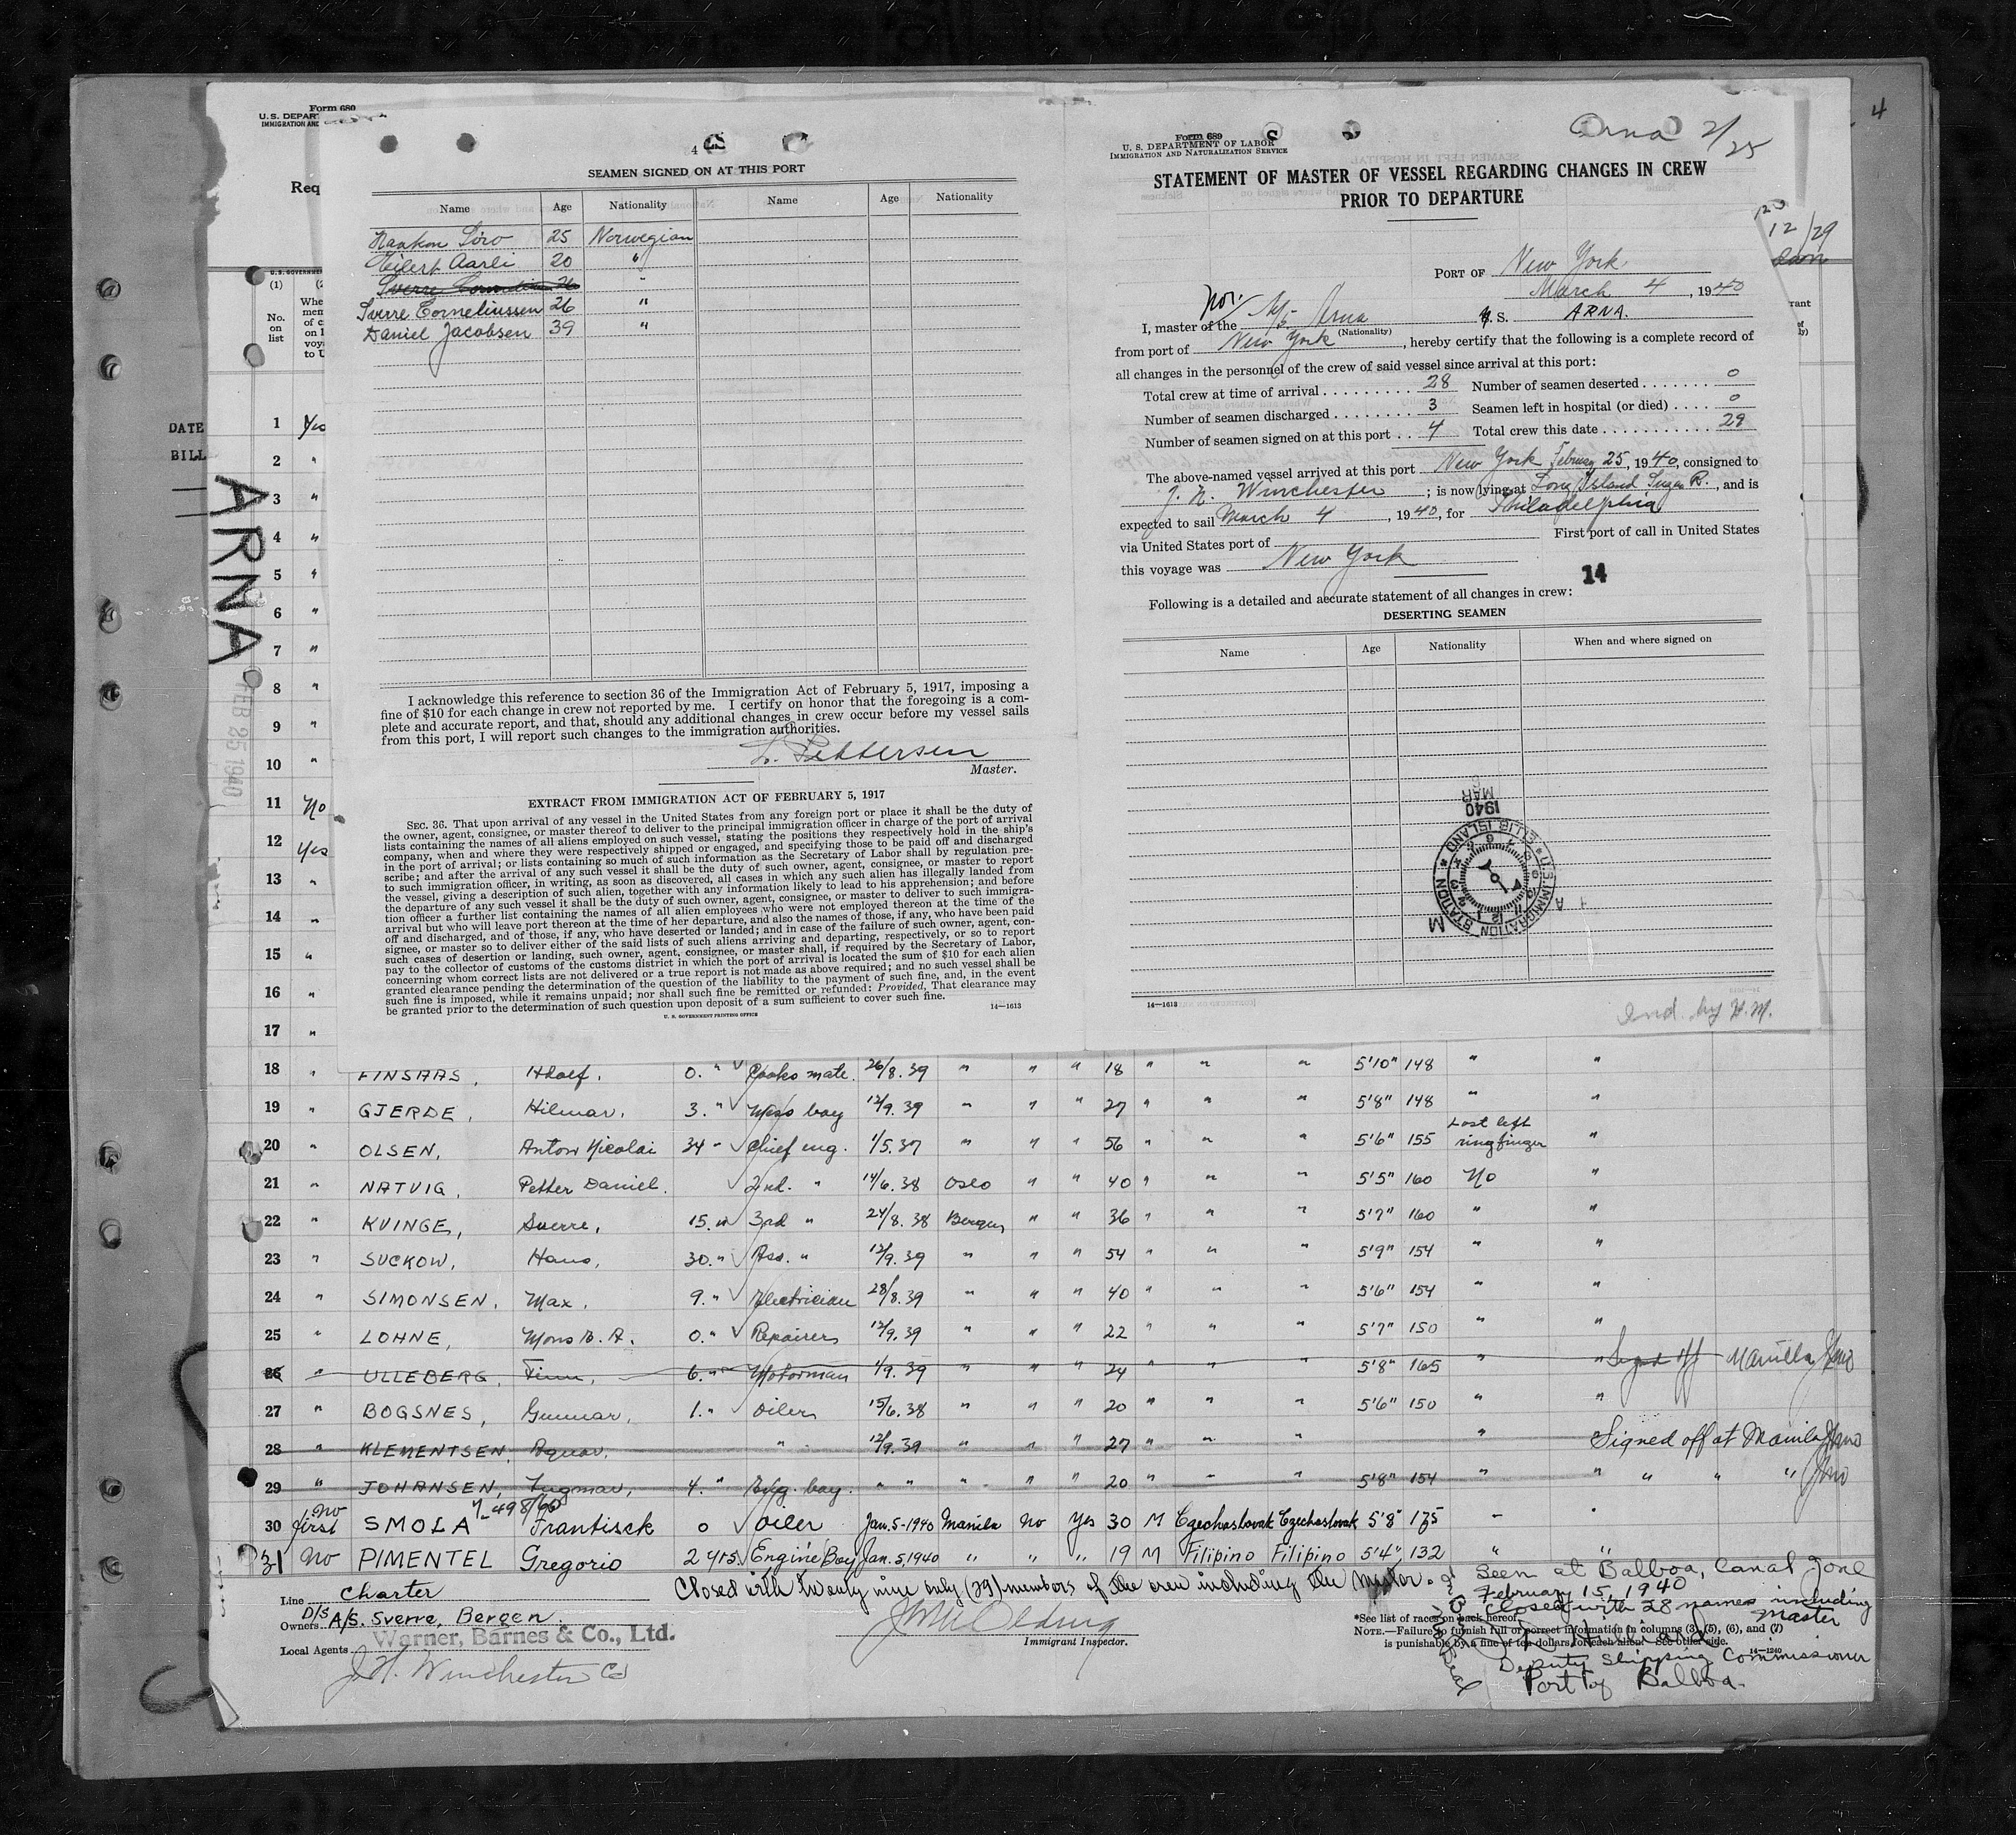 4
Form 689
U. S. DEPART
IMMIGRATION AND
Req
U.S. GOVERNMEN
(1)
No.
on
list
DATE
BILL
ARNA
FEB 25 1940
4
SEAMEN SIGNED ON AT THIS PORT
Name Age Nationality Name Age Nationality
Haakon Siro 25 Norwegian
Eilert Aarli 20 "
Sverre Corneliussen 26 "
Sverre Corneliussen 26 "
Daniel Jacobsen 39 "
I acknowledge this reference to section 36 of the Immigration Act of February 5, 1917, imposing a
fine of $10 for each change in crew not reported by me. I certify on honor that the foregoing is a com-
plete and accurate report, and that, should any additional changes in crew occur before my vessel sails
from this port, I will report such changes to the immigration authorities.
L. Pettersen
Master.
EXTRACT FROM IMMIGRATION ACT OF FEBRUARY 5, 1917
SEC. 36. That upon arrival of any vessel in the United States from any foreign port or place it shall be the duty of
the owner, agent, consignee, or master thereof to deliver to the principal immigration officer in charge of the port of arrival
lists containing the names of all aliens employed on such vessel, stating the positions they respectively hold in the ship's
company, when and where they were respectively shipped or engaged, and specifying those to be paid off and discharged
in the port of arrival; or lists containing so much of such information as the Secretary of Labor shall by regulation pre-
scribe; and after the arrival of any such vessel it shall be the duty of such owner, agent, consignee, or master to report
to such immigration officer, in writing, as soon as discovered, all cases in which any such alien has illegally landed from
the vessel, giving a description of such alien, together with any information likely to lead to his apprehension; and before
the departure of any such vessel it shall be the duty of such owner, agent, consignee, or master to deliver to such immigra-
tion officer a further list containing the names of all alien employees who were not employed thereon at the time of the
arrival but who will leave port thereon at the time of her departure, and also the names of those, if any, who have been paid
off and discharged, and of those, if any, who have deserted or landed; and in case of the failure of such owner, agent, con-
signee, or master so to deliver either of the said lists of such aliens arriving and departing, respectively, or so to report
such cases of desertion or landing, such owner, agent, consignee, or master shall, if required by the Secretary of Labor,
pay to the collector of customs of the customs district in which the port of arrival is located the sum of $10 for each alien
concerning whom correct lists are not delivered or a true report is not made as above required; and no such vessel shall be
granted clearance pending the determination of the question of the liability to the payment of such fine, and, in the event
such fine is imposed, while it remains unpaid; nor shall such fine be remitted or refunded: Provided, That clearance may
be granted prior to the determination of such question upon deposit of a sum sufficient to cover such fine.
U. S. GOVERNMENT PRINTING OFFICE 14—1613
Form 689
U. S. DEPARTMENT OF LABOR
IMMIGRATION AND NATURALIZATION SERVICE
Arna 2/25
STATEMENT OF MASTER OF VESSEL REGARDING CHANGES IN CREW
PRIOR TO DEPARTURE
12/29
PORT OF New York
March 4, 1940
I, master of the Nor. M/S Arna S. S. ARNA.
(Nationality)
from port of New York, hereby certify that the following is a complete record of
all changes in the personnel of the crew of said vessel since arrival at this port:
Total crew at time of arrival 28 Number of seamen deserted 0
Number of seamen discharged 3 Seamen left in hospital (or died) 0
Number of seamen signed on at this port 4 Total crew this date 29
The above-named vessel arrived at this port New York February 25, 1940, consigned to
J. H. Winchester; is now lying at Long Island Sugar R., and is
expected to sail March 4, 1940, for Philadelphia
via United States port of First port of call in United States
this voyage was New York
14
Following is a detailed and accurate statement of all changes in crew:
DESERTING SEAMEN
Name Age Nationality When and where signed on
MAR 1940
U.S. IMMIGRATION STATION ELLIS ISLAND
14—1613
Ind. by H.M.
1 Yes
2 "
3 "
4 "
5 "
6 "
7 "
8 "
9 "
10 "
11 No
12 Yes
13 "
14 "
15 "
16 "
17 "
18 " FINSAAS, 0. " Cooks mate. 26/8.39 " " " 18 " " " 5'10" 148 " "
19 " GJERDE, Hilmar, 3. " Mess boy 12/9.39 " " " 27 " " " 5'8" 148 " "
20 " OLSEN, Anton Nicolai 34 " Chief eng. 1/5.37 " " " 56 " " " 5'6" 155 Lost left ringfinger "
21 " NATVIG, Petter Daniel. 2nd. " 14/6.38 Oslo " " 40 " " " 5'5" 160 No "
22 " KVINGE, Sverre, 15. " 3rd " 24/8.38 Bergen " " 36 " " " 5'7" 160 " "
23 " SUCKOW, Hans, 30. " Ass. " 12/9.39 " " " 54 " " " 5'9" 154 " "
24 " SIMONSEN, Max, 9. " Electrician 28/8.39 " " " 40 " " " 5'6" 154 " "
25 " LOHNE, Mons B. A. 0. " Repairer 12/9.39 " " " 22 " " " 5'7" 150 " "
26 " ULLEBERG, Finn, 6. " Motorman 1/9.39 " " " 24 " " " 5'8" 165 " " Signed off Manilla
27 " BOGSNES, Gunnar, 1. " Oiler 15/6.38 " " " 20 " " " 5'6" 150 " "
28 " KLEMENTSEN, Agnar, " 12/9.39 " " " 27 " " " " Signed off at Manila
29 " JOHANSEN, Ingmar, 4. " Eng. boy. " " " " " 20 " " " 5'8" 154 " " " " "
30 no first SMOLA Frantisek 0 Oiler Jan. 5-1940 Manila No Yes 30 M Czechoslovak Czechoslovak 5'8" 175 - "
31 No PIMENTEL Gregorio 2 yrs. Engine Boy Jan. 5, 1940 " " " 19 M Filipino Filipino 5'4" 132 " "
Closed with twenty nine only (29) members of the crew including the Master.
Line Charter
Owners D/S A/S. Sverre, Bergen.
Local Agents Warner, Barnes & Co., Ltd.
J. H. Winchester Co
Immigrant Inspector.
Seen at Balboa, Canal Zone
February 15, 1940
Closed with 28 names including
Master
*See list of races on back hereof.
NOTE.—Failure to furnish full or correct information in columns (3), (5), (6), and (7)
is punishable by a fine of ten dollars for each alien. See other side.
14—1240
Deputy Shipping Commissioner
Port of Balboa.